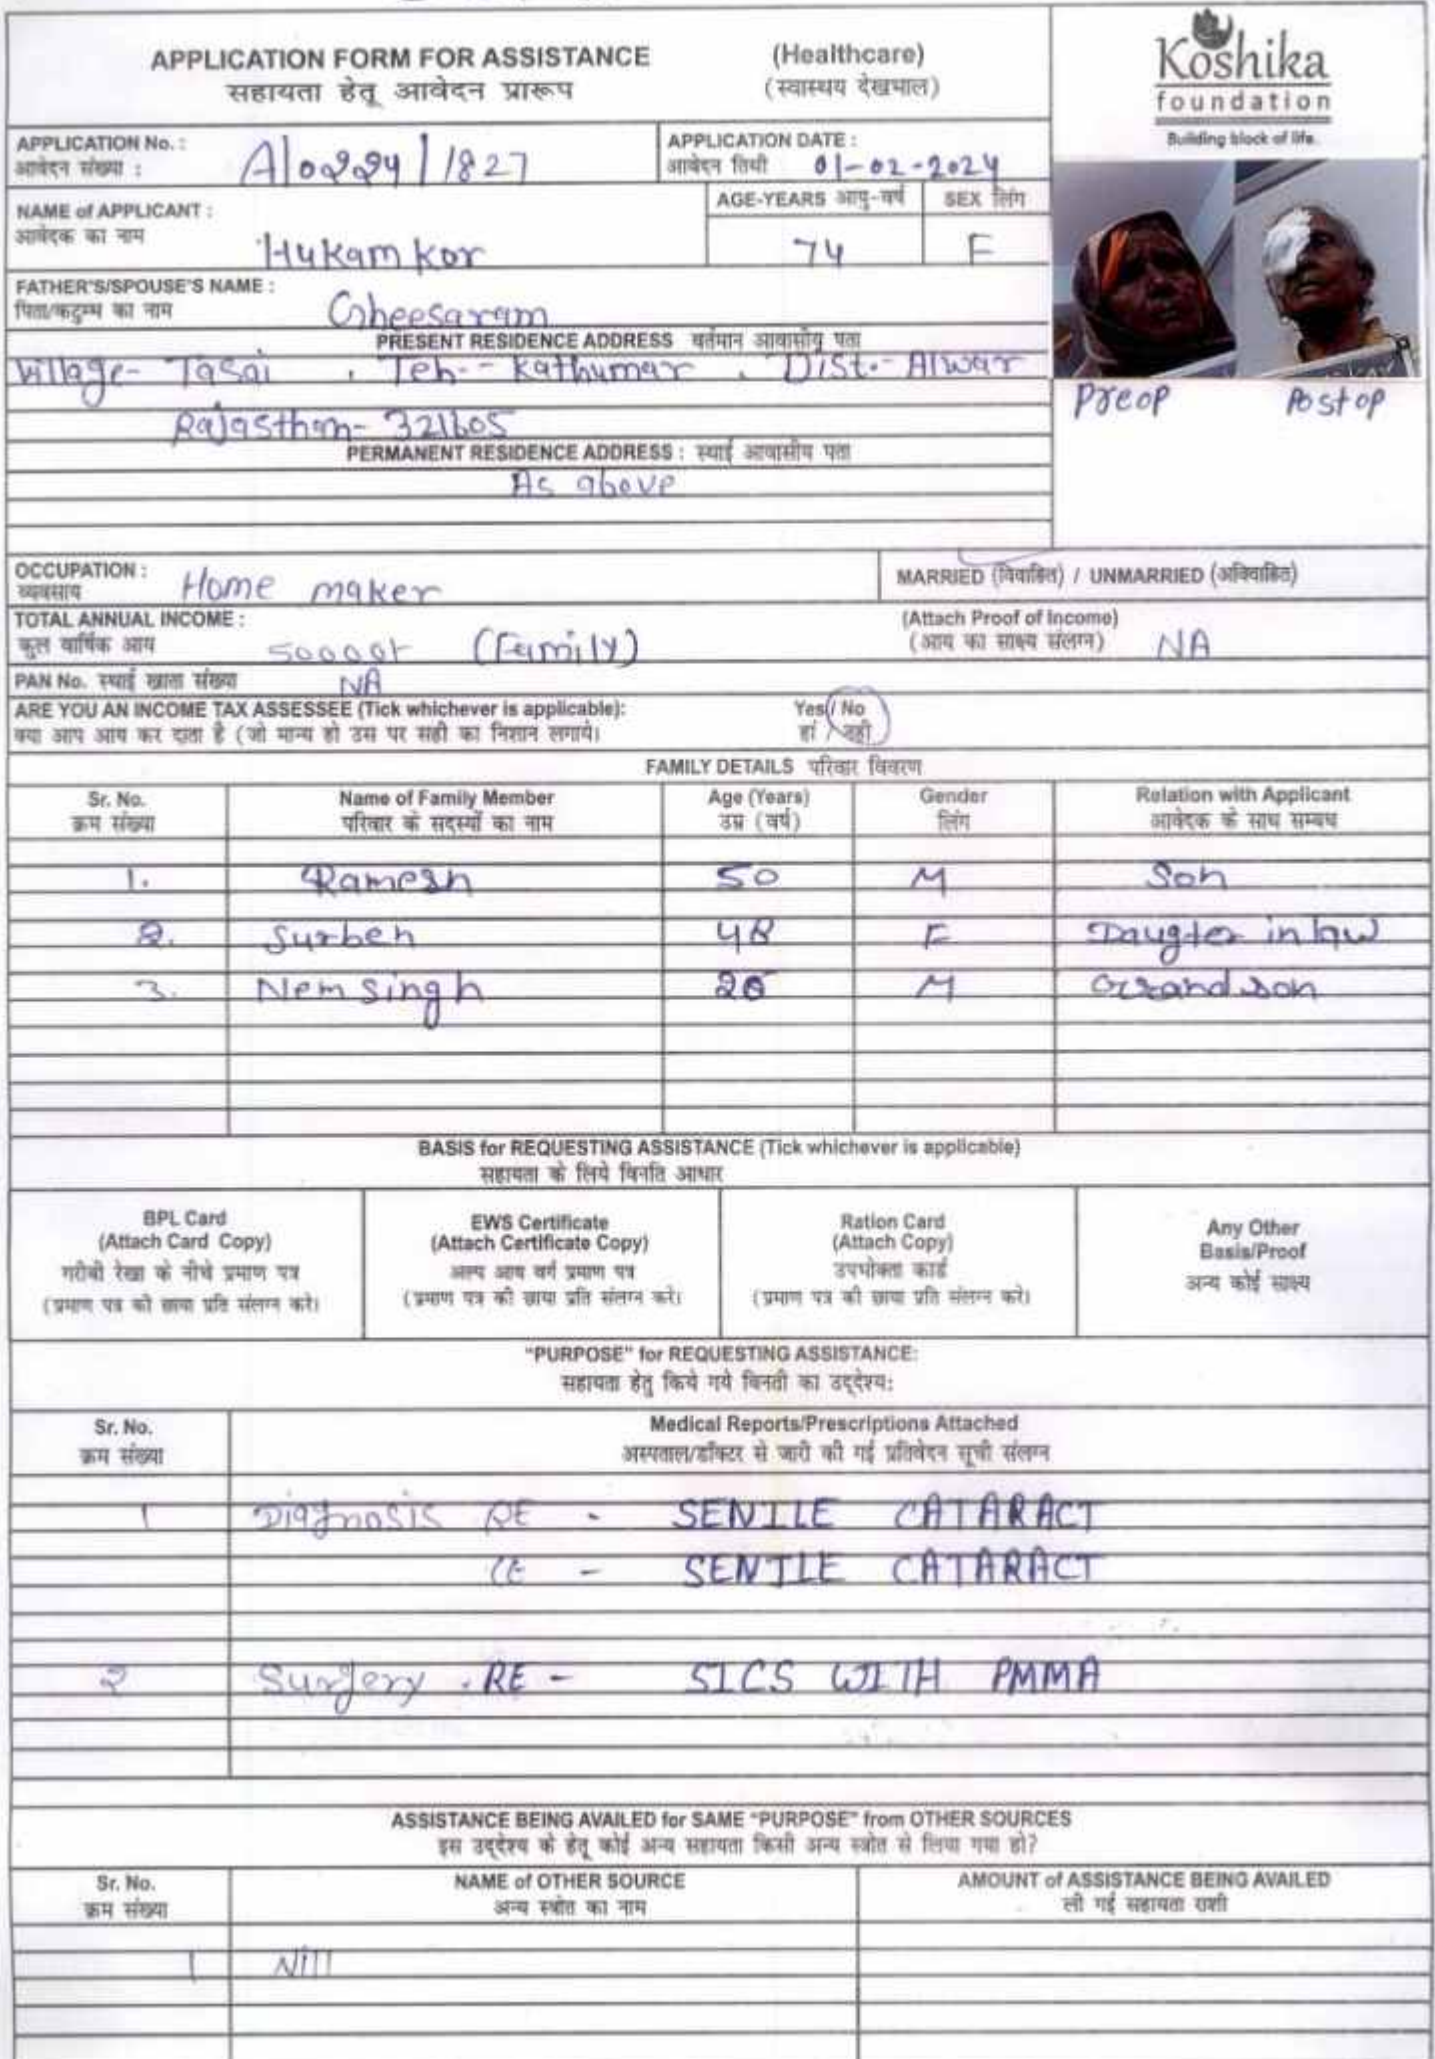 APPLICATION FORM FOR ASSISTANCE (Healthcare)
सहायता हेतू आवेदन प्रारूप (स्वास्थय देखभाल)
Koshika
foundation
Building block of life.
APPLICATION No. :
आवेदन संख्या : A/02224/1827
APPLICATION DATE :
आवेदन तिथी 01-02-2024
NAME of APPLICANT :
आवेदक का नाम Hukam kor
AGE-YEARS आयु-वर्ष
74
SEX लिंग
F
FATHER'S/SPOUSE'S NAME :
पिता/कटुम्ब का नाम Gheesaram
PRESENT RESIDENCE ADDRESS वर्तमान आवासीय पता
Village- Tasai , Teh-- Kathumar , Dist.- Alwar
Rajasthan- 321605
Preop Postop
PERMANENT RESIDENCE ADDRESS : स्थाई आवासीय पता
As above
OCCUPATION :
व्यवसाय Home maker
MARRIED (विवाहित) / UNMARRIED (अविवाहित)
TOTAL ANNUAL INCOME :
कुल वार्षिक आय (Family)
(Attach Proof of Income)
(आय का साक्ष्य संलग्न) NA
PAN No. स्थाई खाता संख्या NA
ARE YOU AN INCOME TAX ASSESSEE (Tick whichever is applicable): Yes / No
क्या आप आय कर दाता है (जो मान्य हो उस पर सही का निशान लगाये। हां / नही
FAMILY DETAILS परिवार विवरण
Sr. No. Name of Family Member Age (Years) Gender Relation with Applicant
क्रम संख्या परिवार के सदस्यों का नाम उम्र (वर्ष) लिंग आवेदक के साथ सम्बध
1. Ramesh 50 M Son
2. Surben 48 F Daugter in law
3. Nem singh M Grand son
BASIS for REQUESTING ASSISTANCE (Tick whichever is applicable)
सहायता के लिये विनति आधार
BPL Card
(Attach Card Copy)
गरीबी रेखा के नीचे प्रमाण पत्र
(प्रमाण पत्र की छाया प्रति संलग्न करे।
EWS Certificate
(Attach Certificate Copy)
अल्प आय वर्ग प्रमाण पत्र
(प्रमाण पत्र की छाया प्रति संलग्न करे।
Ration Card
(Attach Copy)
उपभोक्ता कार्ड
(प्रमाण पत्र की छाया प्रति संलग्न करे।
Any Other
Basis/Proof
अन्य कोई साक्ष्य
"PURPOSE" for REQUESTING ASSISTANCE:
सहायता हेतु किये गये विनती का उद्देश्य:
Sr. No. Medical Reports/Prescriptions Attached
क्रम संख्या अस्पताल/डॉक्टर से जारी की गई प्रतिवेदन सूची संलग्न
1 Diagnosis RE - SENILE CATARACT
LE - SENILE CATARACT
2 Surgery . RE - SICS WITH PMMA
ASSISTANCE BEING AVAILED for SAME "PURPOSE" from OTHER SOURCES
इस उद्देश्य के हेतू कोई अन्य सहायता किसी अन्य स्त्रोत से लिया गया हो?
Sr. No. NAME of OTHER SOURCE AMOUNT of ASSISTANCE BEING AVAILED
क्रम संख्या अन्य स्त्रोत का नाम ली गई सहायता राशी
1 Nill